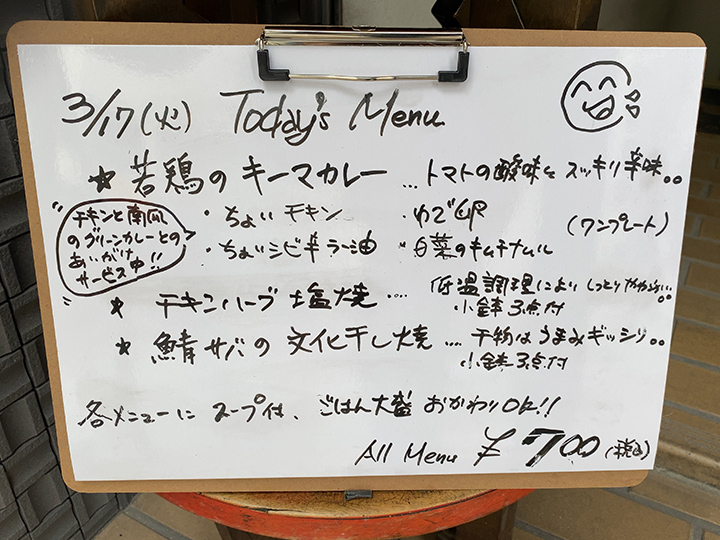 3/17(火) Today's Menu
★ 若鶏のキーマカレー … トマトの酸味とスッキリ辛味。。
・ちょいチキン ・ゆで卵 (ワンプレート)
・ちょいシビ辛ラー油 ・白菜のキムチナムル
チキンと南風
のグリーンカレーとの
あいがけ
サービス中!!
★ チキンハーブ塩焼 …. 低温調理によりしっとりやわらかい…
小鉢3点付
★ 鯖サバの文化干し焼 …. 干物はうまみギッシリ。。
小鉢3点付
各メニューにスープ付、ごはん大盛おかわりOK!!
All Menu ¥700(税込)